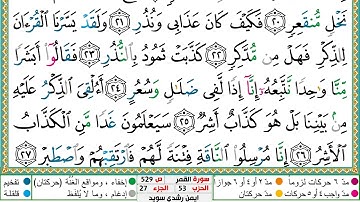 نَخْلٍ مُّنقَعِرٍ ٢٠ فَكَيْفَ كَانَ عَذَابِى وَنُذُرِ ٢١ وَلَقَدْ يَسَّرْنَا ٱلْقُرْءَانَ
لِلذِّكْرِ فَهَلْ مِن مُّدَّكِرٍ ٢٢ كَذَّبَتْ ثَمُودُ بِٱلنُّذُرِ ٢٣ فَقَالُوٓا۟ أَبَشَرًا
مِّنَّا وَٰحِدًا نَّتَّبِعُهُۥٓ إِنَّآ إِذًا لَّفِى ضَلَٰلٍ وَسُعُرٍ ٢٤ أَءُلْقِىَ ٱلذِّكْرُ عَلَيْهِ
مِنۢ بَيْنِنَا بَلْ هُوَ كَذَّابٌ أَشِرٌ ٢٥ سَيَعْلَمُونَ غَدًا مَّنِ ٱلْكَذَّابُ
ٱلْأَشِرُ ٢٦ إِنَّا مُرْسِلُوا۟ ٱلنَّاقَةِ فِتْنَةً لَّهُمْ فَٱرْتَقِبْهُمْ وَٱصْطَبِرْ ٢٧
مدّ ٦ حركات لزوماً مدّ ٢ أو ٤ أو ٦ جوازاً سورة القمر ص 529 إخفاء، ومواقع الغنّة (حركتان) تفخيم
مدّ واجب ٤ أو ٥ حركات مدّ حركتان الحزب 53 الجزء 27 إدغام، وما لا يُلفَظ قلقلة
ايمن رشدي سويد